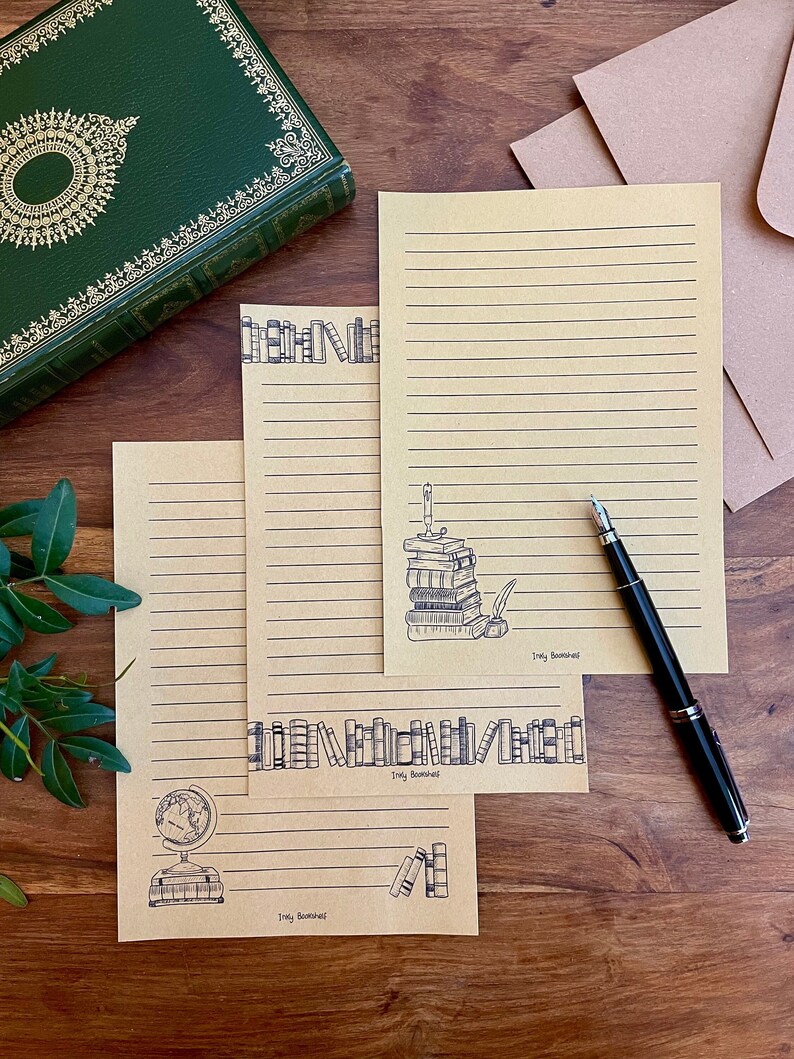 Inky Bookshelf
Inky Bookshelf
Inky Bookshelf